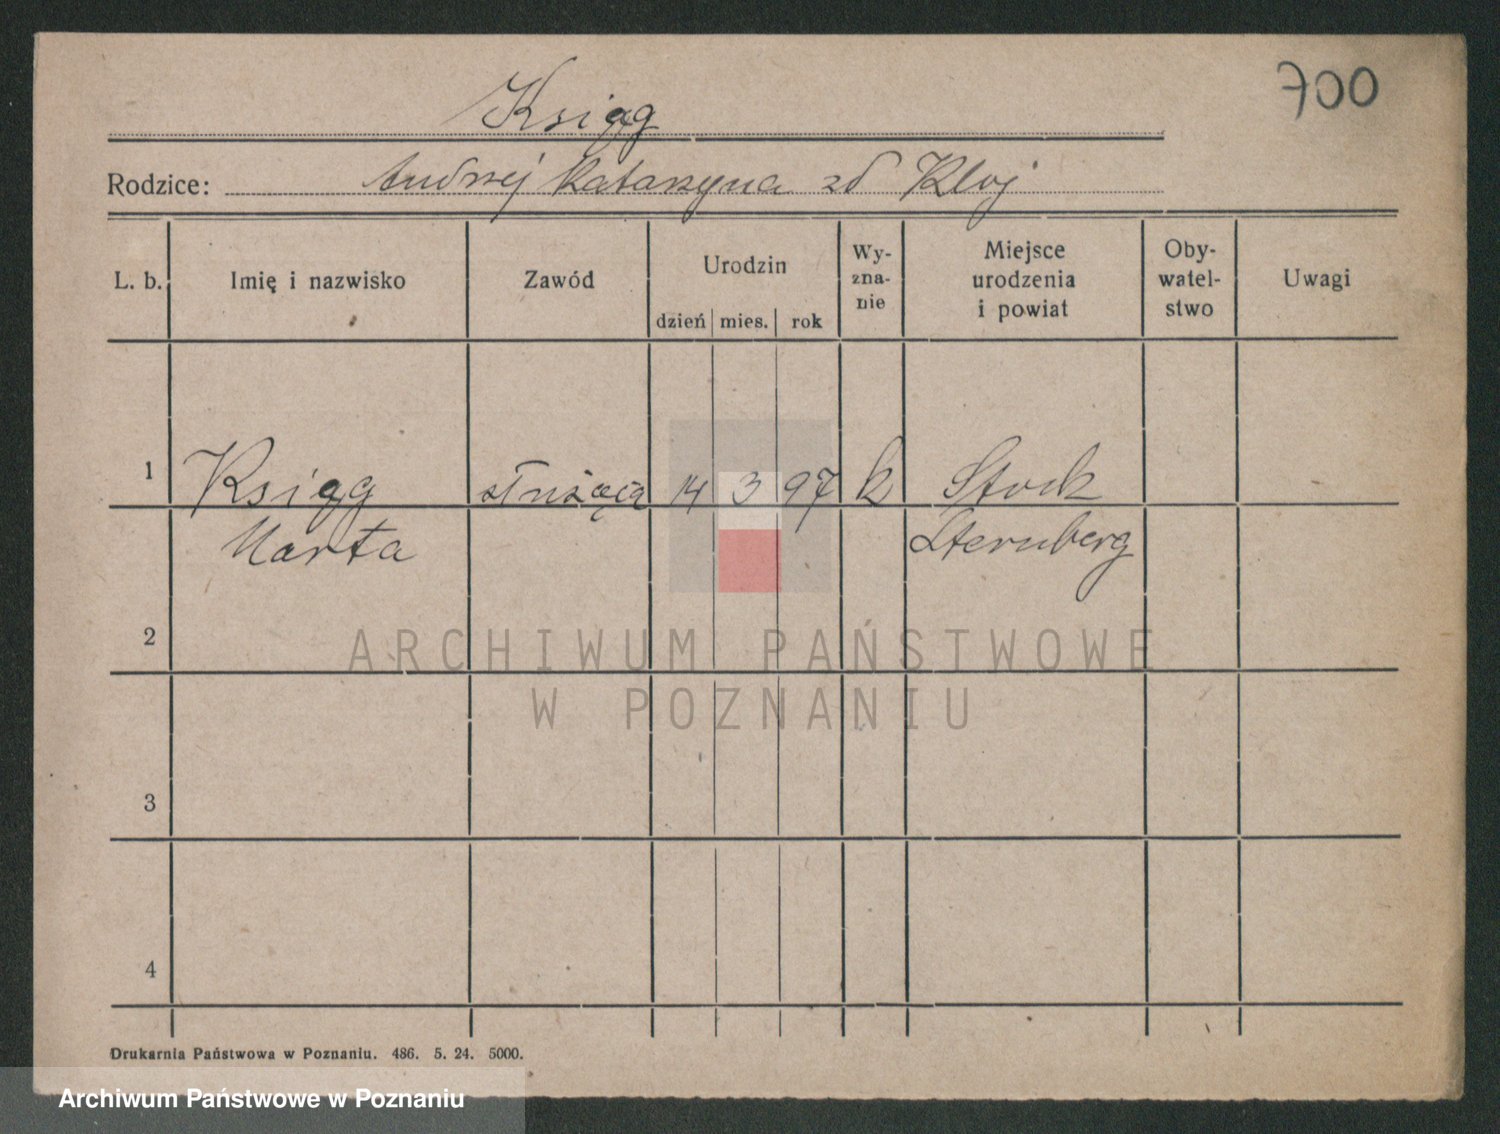 700
Ksiąg
Rodzice: Andrzej Katarzyna zd Kloj
L. b. Imię i nazwisko Zawód Urodzin dzień mies. rok Wy-zna-nie Miejsce urodzenia i powiat Oby-watel-stwo Uwagi
1 Ksiąg służąca 14 3 97 k Stock
Marta Sternberg
2
ARCHIWUM PAŃSTWOWE
W POZNANIU
3
4
Drukarnia Państwowa w Poznaniu. 486. 5. 24. 5000.
Archiwum Państwowe w Poznaniu